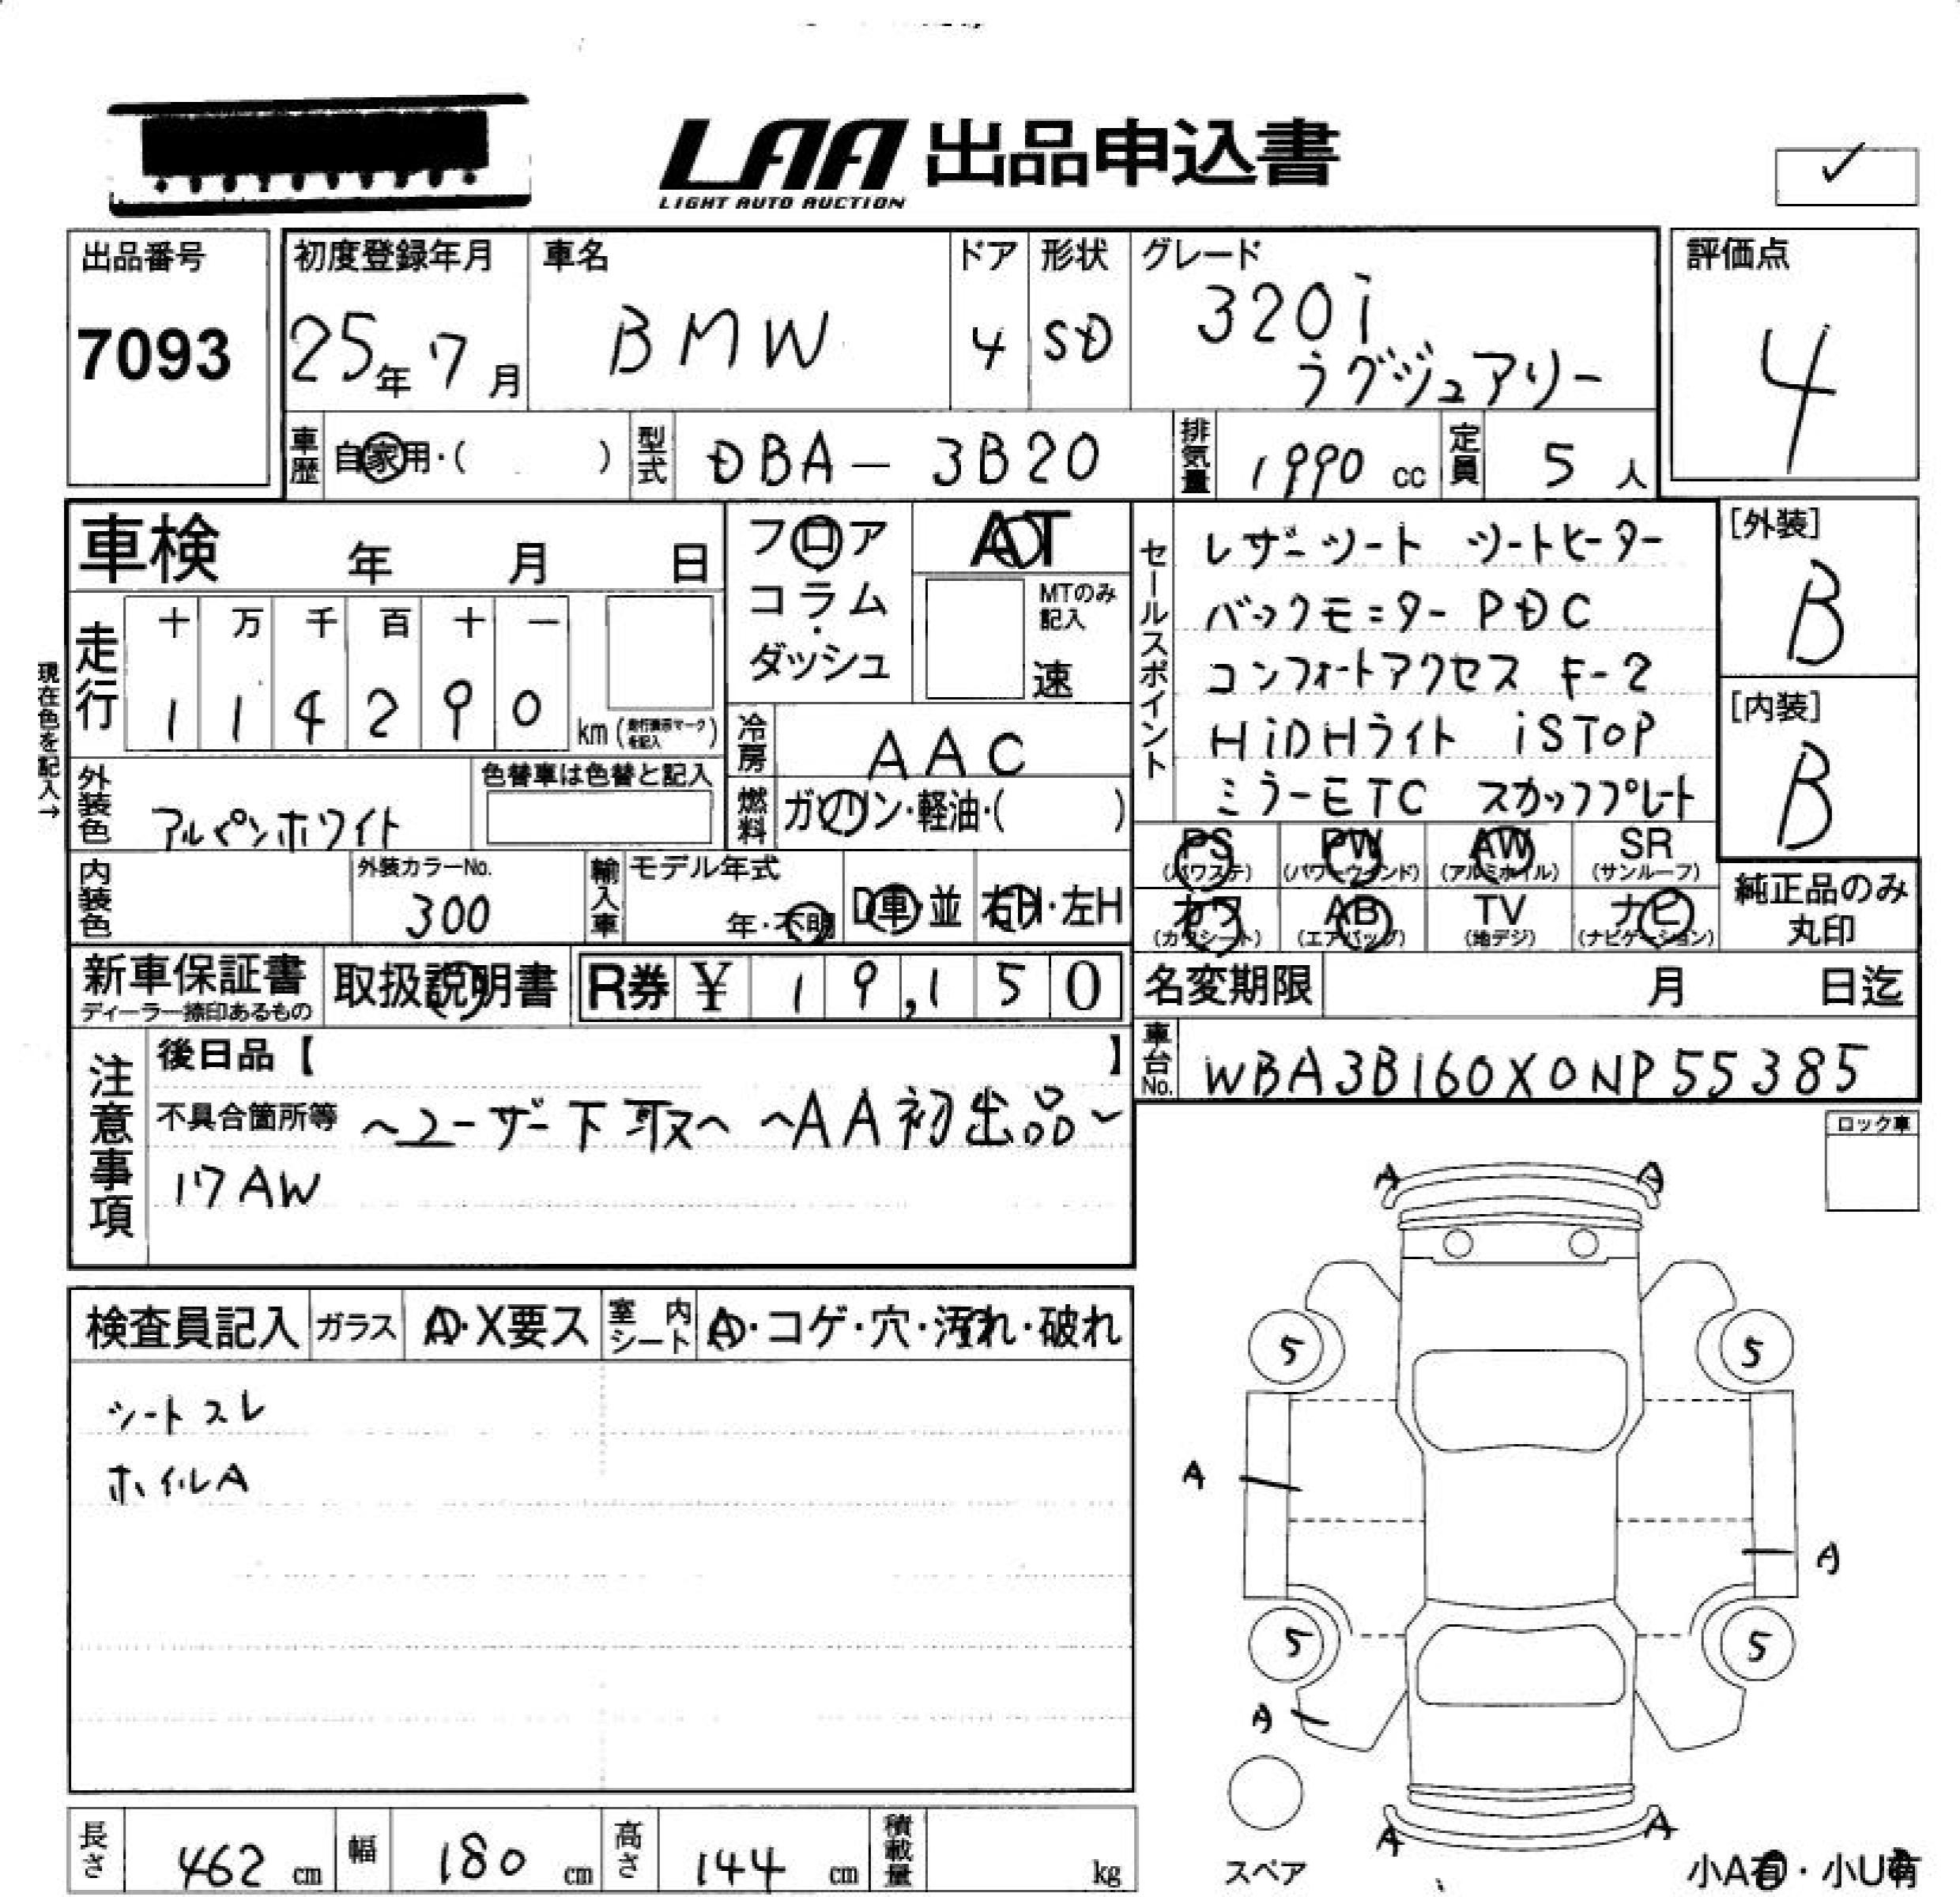 LAA 出品申込書
LIGHT AUTO AUCTION
✓
出品番号
7093
初度登録年月
25年7月
車名
BMW
ドア
4
形状
SD
グレード
320i
ラグジュアリー
評価点
4
車歴
自家用・( )
型式
DBA-3B20
排気量
1990 cc
定員
5 人
車検 年 月 日
フロア
コラム
・
ダッシュ
AT
MTのみ
記入
速
走行
十 万 千 百 十 一
1 1 4 2 9 0 km (走行換算マークを記入)
現在色を記入→
冷房
AAC
燃料
ガソリン・軽油・( )
外装色
アルペンホワイト
色替車は色替と記入
内装色
外装カラーNo.
300
輸入車
モデル年式
年・不明
D車・並
右H・左H
セールスポイント
レザーシート シートヒーター
バックモニター PDC
コンフォートアクセス F-2
HiDHライト iSTOP
ミラーETC スカッフプレート
[外装]
B
[内装]
B
PS
(パワステ)
PW
(パワーウインド)
AW
(アルミホイル)
SR
(サンルーフ)
カワ
(カワシート)
AB
(エアバッグ)
TV
(地デジ)
ナビ
(ナビゲーション)
純正品のみ
丸印
新車保証書
ディーラー捺印あるもの
取扱説明書
R券 ¥ 19,150
名変期限 月 日迄
車台No.
WBA3B160X0NP55385
注意事項
後日品【 】
不具合箇所等 〜ユーザー下取〜 〜AA初出品〜
17AW
ロック車
検査員記入
ガラス
A・X要ス
室内シート
A・コゲ・穴・汚れ・破れ
シートスレ
ホイルA
A A
5 5
A
A
5 5
A
A A
スペア
小A有・小U有
長さ
462 cm
幅
180 cm
高さ
144 cm
積載量
kg